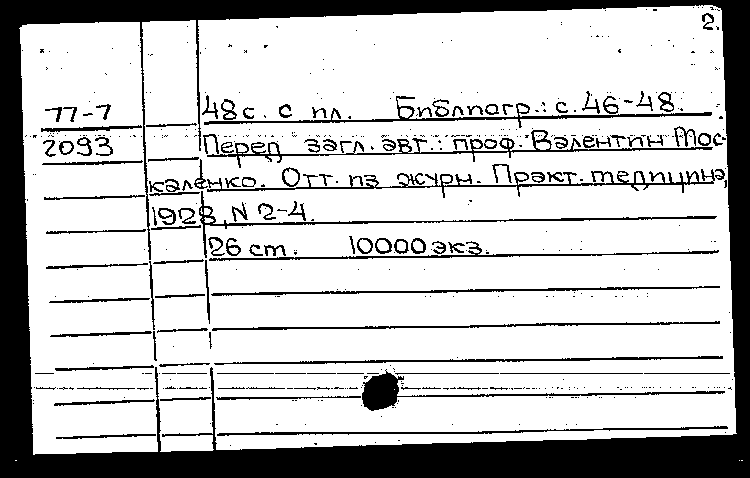 2.
77-7 48 с. с ил. Библиогр.: с. 46-48.
2093 Перед загл. авт.: проф. Валентин Мос-
каленко. Отт. из журн. Практ. медицина,
1928, N 2-4.
26 ст. 10000 экз.